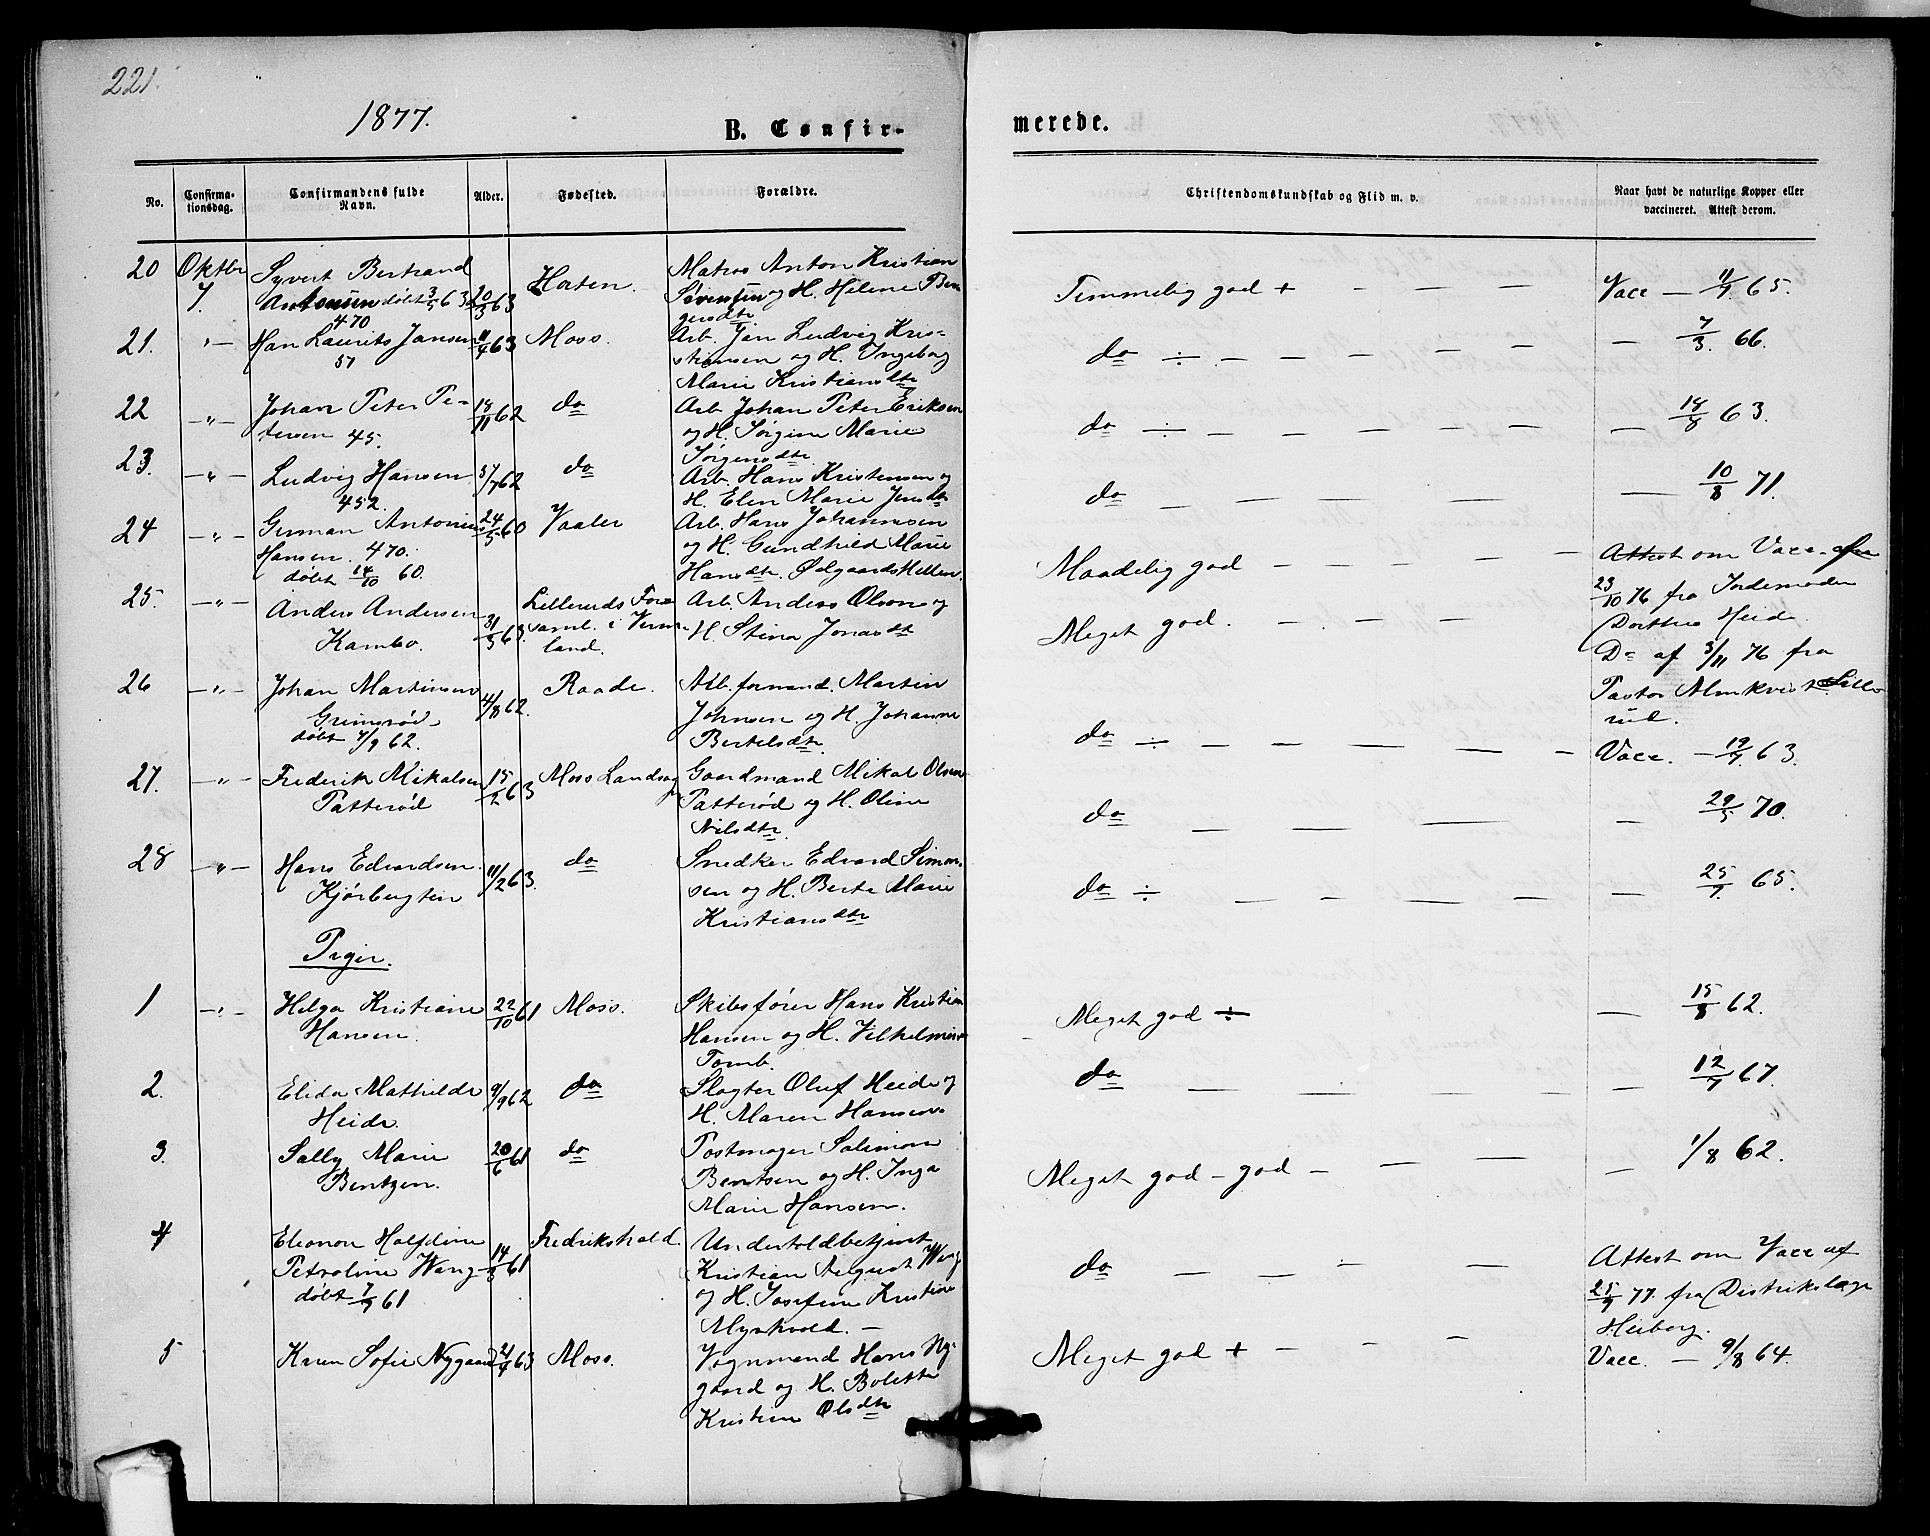 221.
1877.
B. Confir-
merede.
No.
Confirma-
tionsdag.
Confirmandens fulde
Navn.
Alder.
Fødested.
Forældre.
Christendomskundskab og Flid m. v.
Naar havt de naturlige Kopper eller
vaccineret. Attest derom.
20 Oktbr 7. Syvert Bertrand
Antonsen døbt 3/5 63 20/3 63 Horten.
470
Matros Anton Kristian
Sørensen og H. Helene Ben
gersdtr
Temmelig god + — — — Vacc — 11/7 65.
21. -"- Han Laurits Jansen 11/4 63 Moss.
57
Arb. Jan Ludvig Kris-
stiansen og H. Ingeborg
Marie Kristiansdtr
do ÷ — — — — 7/3. 66.
22 -"- Johan Peter Pe-
tersen 45. 18/11 62 do
Arb Johan Peter Eriksen
og H. Jørgine Marie
Jørgensdtr
do ÷ — — — — 18/8 63.
23. -"- Ludvig Hansen /7 62 do
452.
Arb. Hans Kristensen og
H. Elen Marie Jensdtr
do — — — — 10/8 71.
24 -"- German Antonius 24/5 60 Vaaler
Hansen. 470.
døbt 14/10 60.
Arb. Hans Johannesen
og H. Gundhild Marie
Hansdtr. Ødegaards Mellem.
Maadelig god — — — — Attest om Vacc. af
23/10 76 fra Jordemoder
Dorthea Heide.
25. -"- Anders Andersen
Kambo. 31/3 63. Lilleruds For
saml. i Verm-
land.
Arb. Anders Olsen og
H. Stina Jonasdtr
Meget god. — — — —
Do af 3/11 76 fra
Pastor Almkvist Lille
rud.
26 -"- Johan Martinsen
Grimsrød 4/8 62. Raade.
døbt 7/9 62.
Arb. formand. Martin
Johnsen og H. Johanne
Bertelsdtr.
do ÷ — — — — Vacc. — 19/7. 63.
27. -"- Frederik Mikalsen
Patterød 15/2 63 Moss Landsog
Gaardmand Mikal Olsen
Patterød og H. Oline
Nilsdtr.
do — — — — 29/5 70.
28 -"- Hans Edvardsen
Kjørbugten 11/2 63. do
Snedker Edvard Simon-
sen og H. Berte Marie
Kristiansdtr
do ÷ — — — — 25/7. 65.
Piger.
1 -"- Helga Kristiane
Hansen. 22/10 61 Moss.
Skibsfører Hans Kristian
Hansen og H. Vilhelmine
Tomb.
Meget god ÷ — 15/8 62.
2. Elida Mathilde
Heide. 9/9 62 do
Slagter Oluf Heide og
H. Maren Hansen
do — — — — 12/7 67.
3. Sally Marie
Bentzen. 20/6 61 do
Postmager Salomon
Bentsen og H. Inga
Marie Hansen.
Meget god - god — — — 1/8 62.
4 Eleonore Halfdine
Petroline Wang 14/8 61 Fredrikshald.
døbt 1/9 61
Undertoldbetjent
Kristian August Wang
og H. Josefine Kristine
Myrhvold. —
do — — — — Attest om Vacc af
25/9 77. fra Distriktslæge
Heiberg.
5 Karen Sofie Nygaard 21/4 63 Moss.
Vognmand Hans Ny-
gaard og H. Bolette
Kristine Olsdtr
Meget god + — — — Vacc. — 9/8 64.